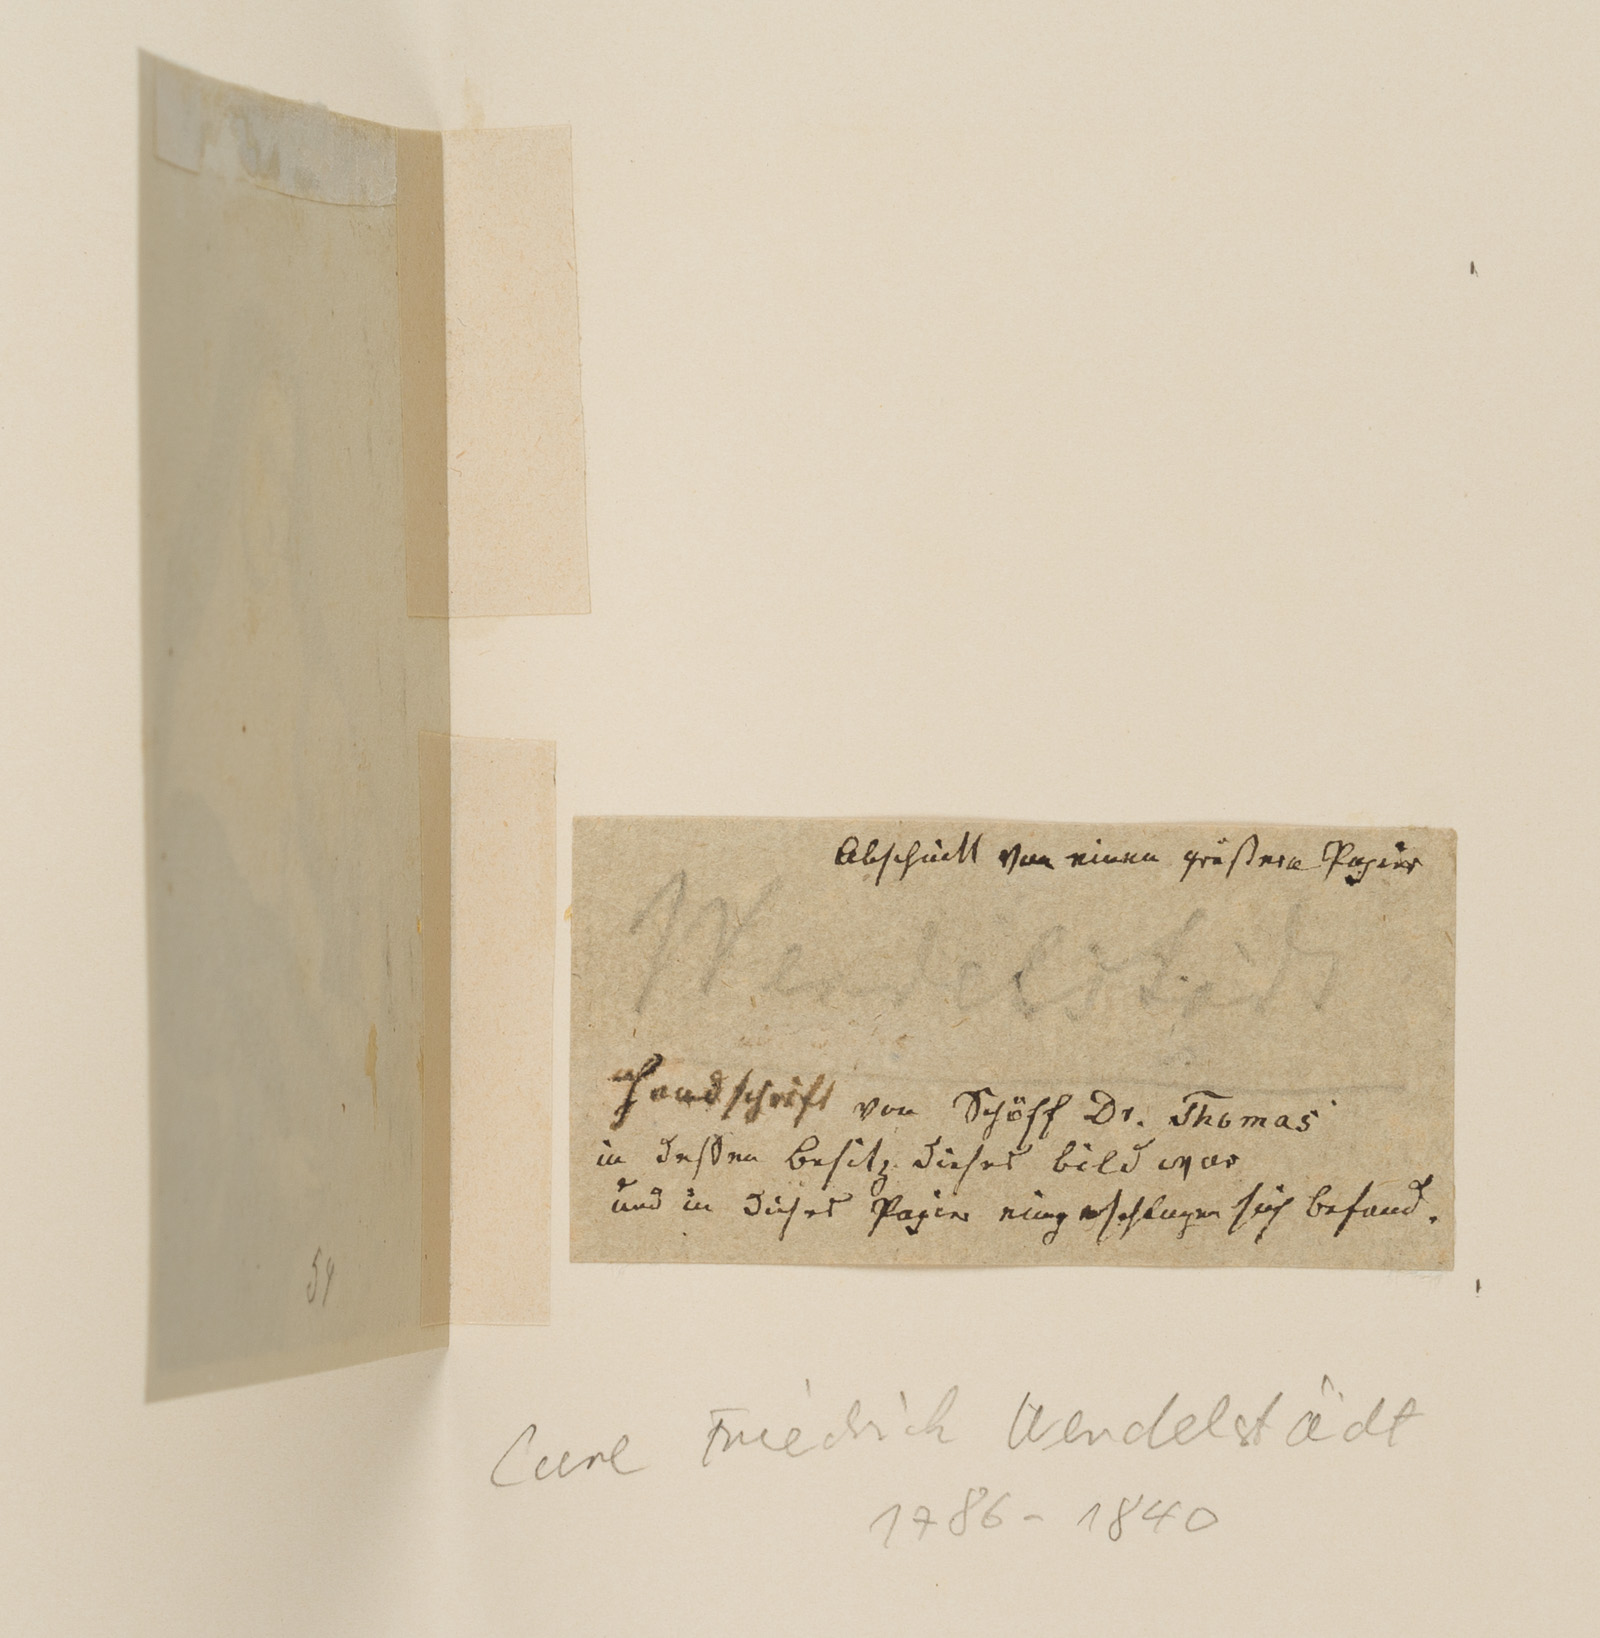 Abschnitt von einem größern Papier
Wendelstädt
Handschrift von Schöff Dr. Thomas
in deßen besitz dieses bild war
und in dieses Papier eingeschlagen sich befand.
54
Carl Friedrich Wendelstädt
1786 - 1840